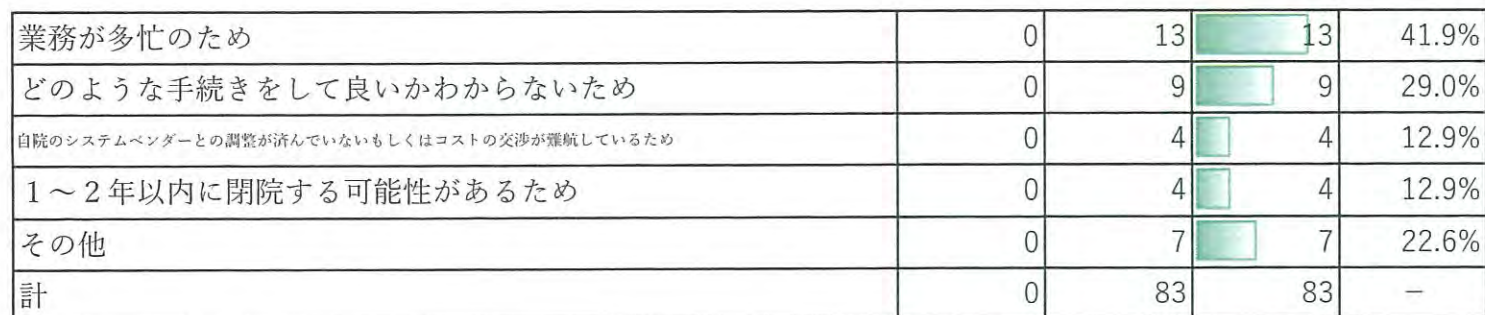 業務が多忙のため 0 13 13 41.9%
どのような手続きをして良いかわからないため 0 9 9 29.0%
自院のシステムベンダーとの調整が済んでいないもしくはコストの交渉が難航しているため 0 4 4 12.9%
1～2年以内に閉院する可能性があるため 0 4 4 12.9%
その他 0 7 7 22.6%
計 0 83 83 −